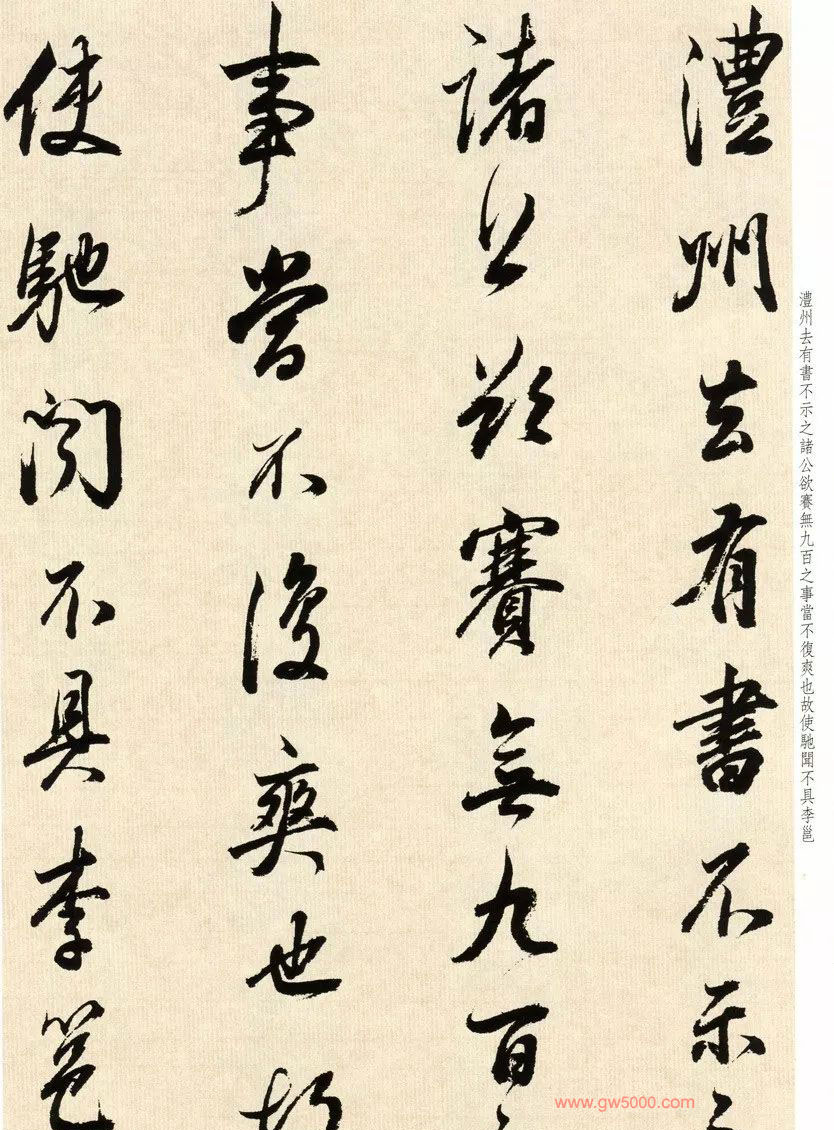 澧州去有書不示之
諸公欲賽無九百之
事當不復爽也故
使馳聞不具李邕
澧州去有書不示之諸公欲賽無九百之事當不復爽也故使馳聞不具李邕
www.gw5000.com